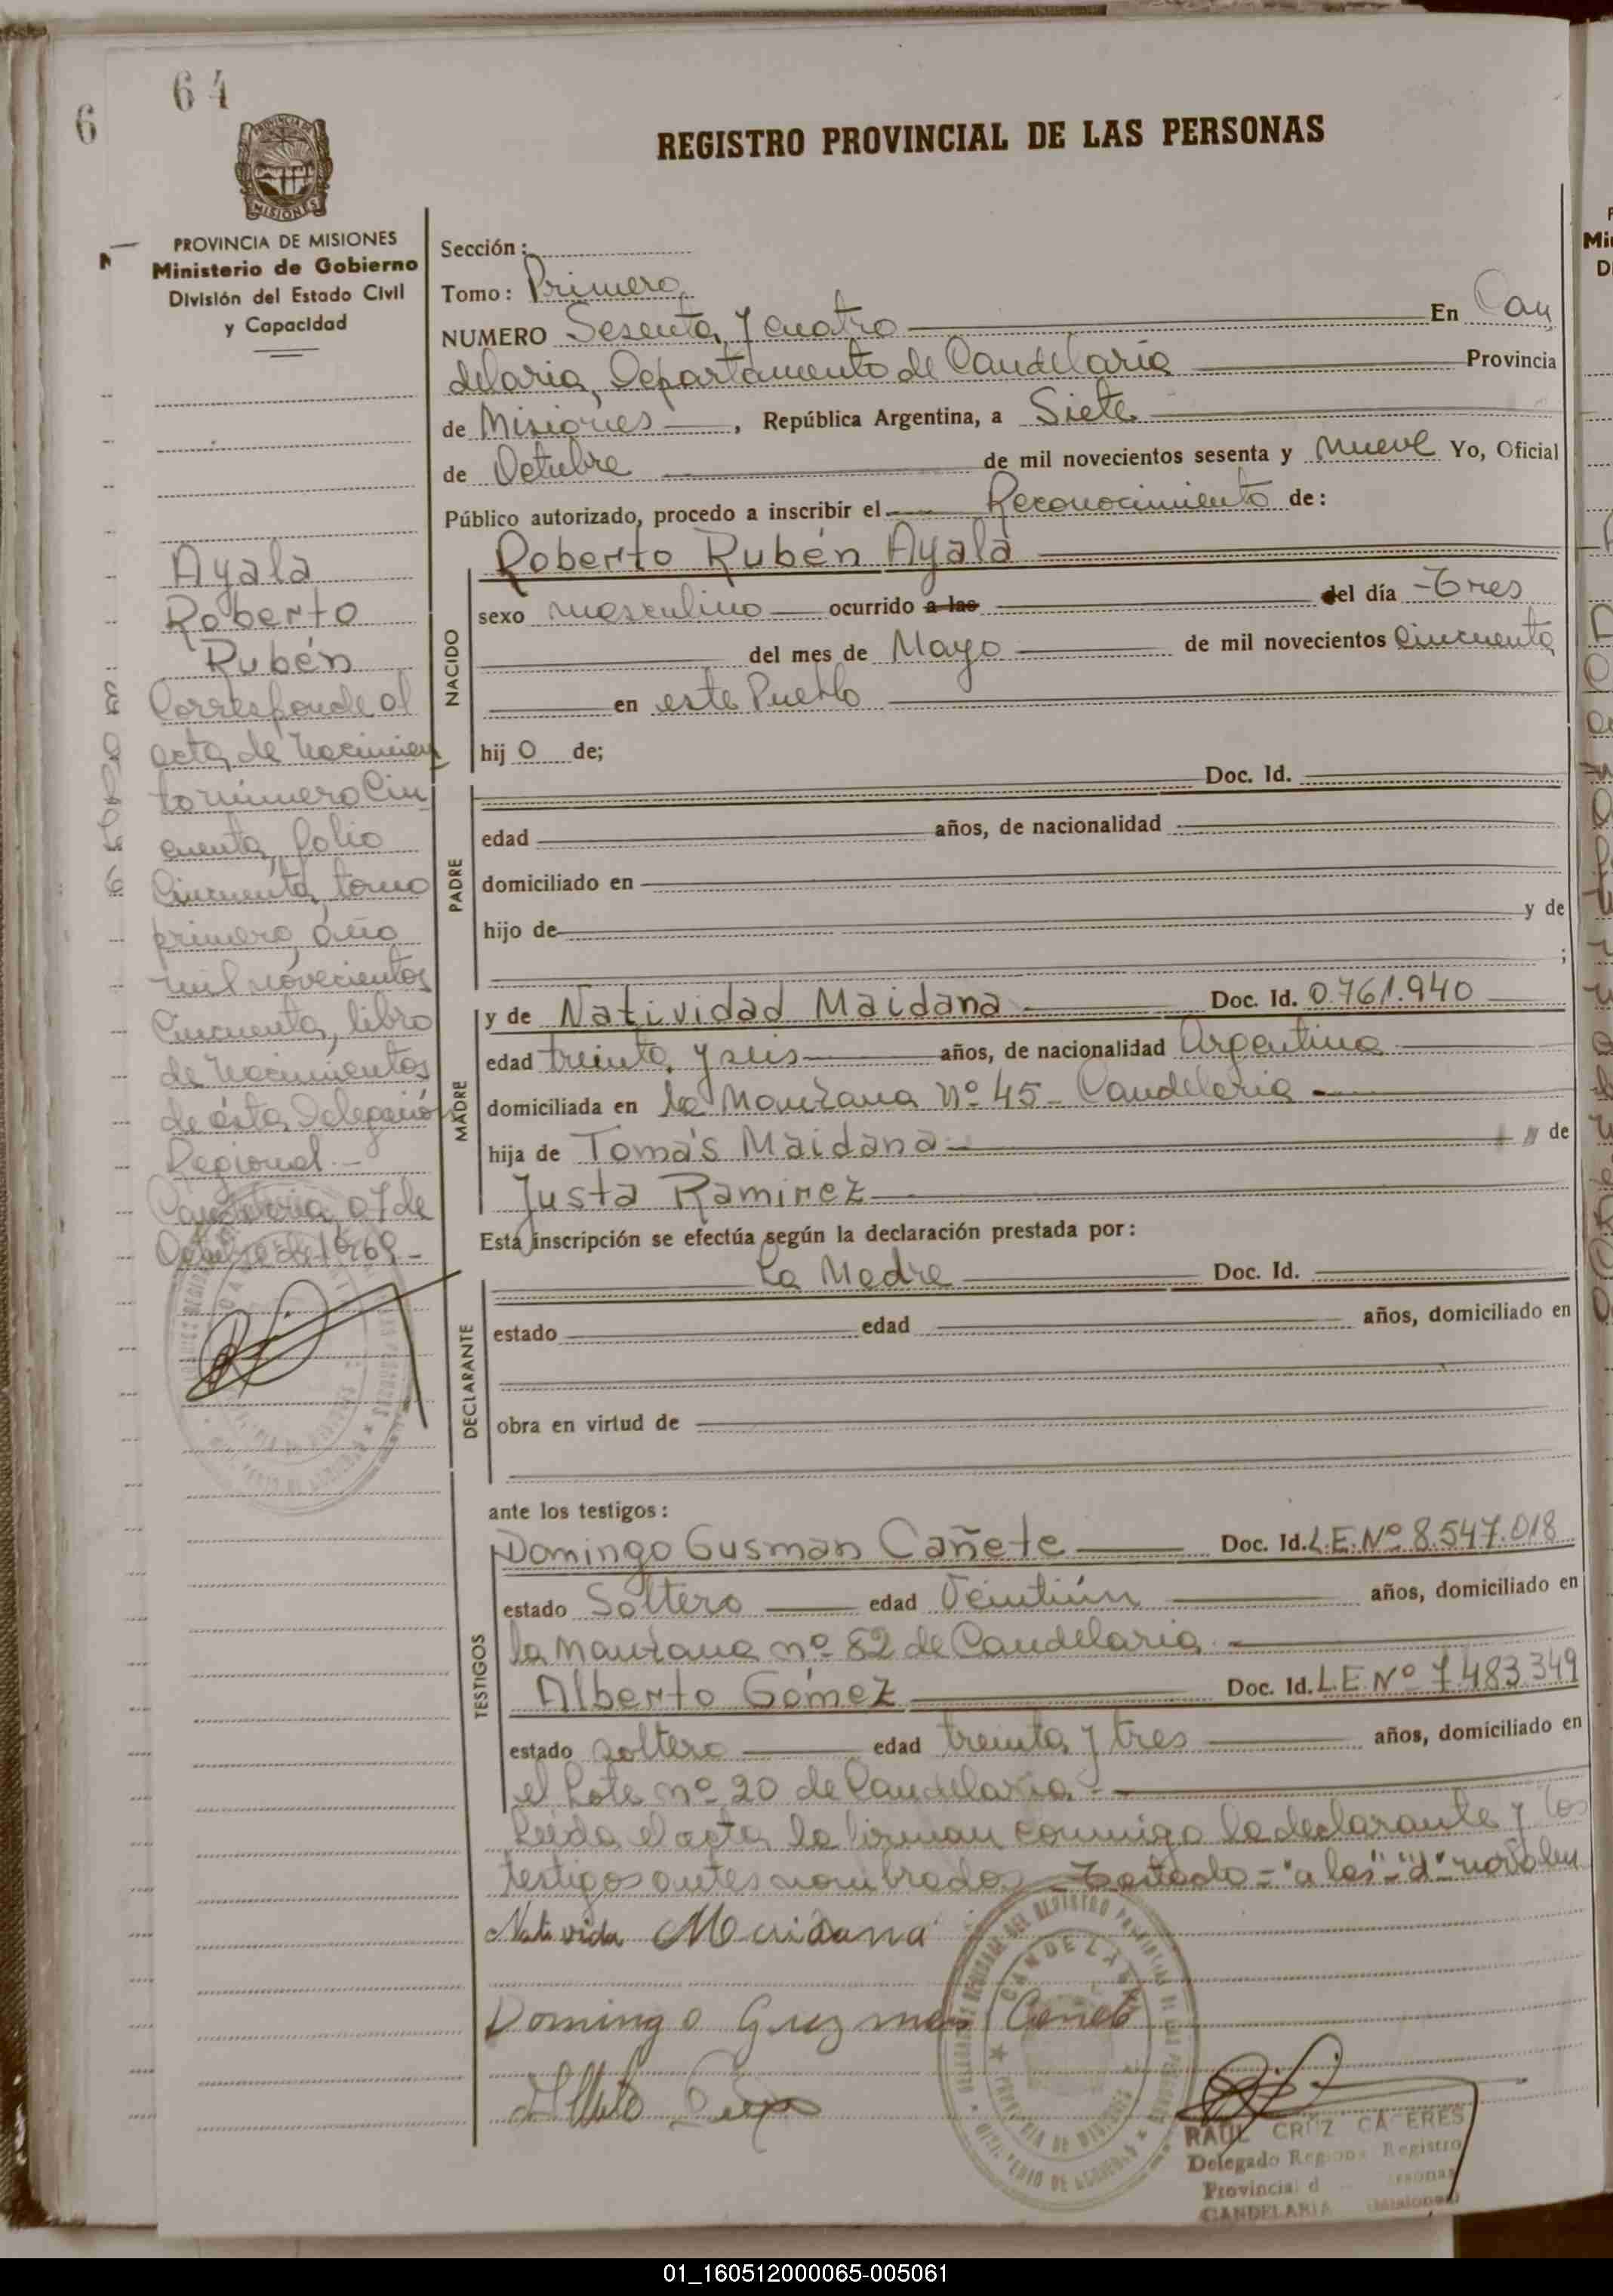 64
6
REGISTRO PROVINCIAL DE LAS PERSONAS
PROVINCIA DE MISIONES
Ministerio de Gobierno
División del Estado Civil
y Capacidad
Ayala
Roberto
Rubén
Corresponde al
acta de Nacimien
to número Cin
cuenta, folio
Cincuenta, tomo
primero, año
mil novecientos
Cincuenta, libro
de Nacimientos
de ésta Delegació
Regional.-
Candelaria, 07 de
Octubre de 1969.-
Sección:
Tomo: Primero
NUMERO Sesenta y cuatro En Can
delaria, Departamento de Candelaria Provincia
de Misiones, República Argentina, a Siete
de Octubre de mil novecientos sesenta y nueve Yo, Oficial
Público autorizado, procedo a inscribir el Reconocimiento de:
NACIDO
Roberto Rubén Ayala
sexo masculino ocurrido a las del día -Tres
del mes de Mayo de mil novecientos Cincuenta
en este Pueblo
hij o de;
PADRE
Doc. Id.
edad años, de nacionalidad
domiciliado en
hijo de y de
;
MADRE
y de Natividad Maidana Doc. Id. 0.761.940
edad treinta y seis años, de nacionalidad Argentina
domiciliada en la Manzana Nº 45 - Candelaria
hija de Tomás Maidana y de
Justa Ramirez
Esta inscripción se efectúa según la declaración prestada por:
DECLARANTE
La Madre Doc. Id.
estado edad años, domiciliado en
obra en virtud de
ante los testigos:
TESTIGOS
Domingo Gusman Cañete Doc. Id. L.E. Nº 8.547.018
estado Soltero edad Veintiún años, domiciliado en
la Manzana nº 82 de Candelaria
Alberto Gómez Doc. Id. L.E. Nº 7.483.349
estado soltero edad treinta y tres años, domiciliado en
el Lote nº 20 de Candelaria.-
Leída el acta, la firman conmigo la declarante y los
testigos antes nombrados.- Testado = "a las" - "d" no valen
Nativida Maidana
Domingo Guzman Cañete
CANDELARIA
PROVINCIA DE MISIONES
RAUL CRUZ CACERES
Delegado Regional Registro
Provincial d
CANDELARIA (Misiones)
01_160512000065-005061